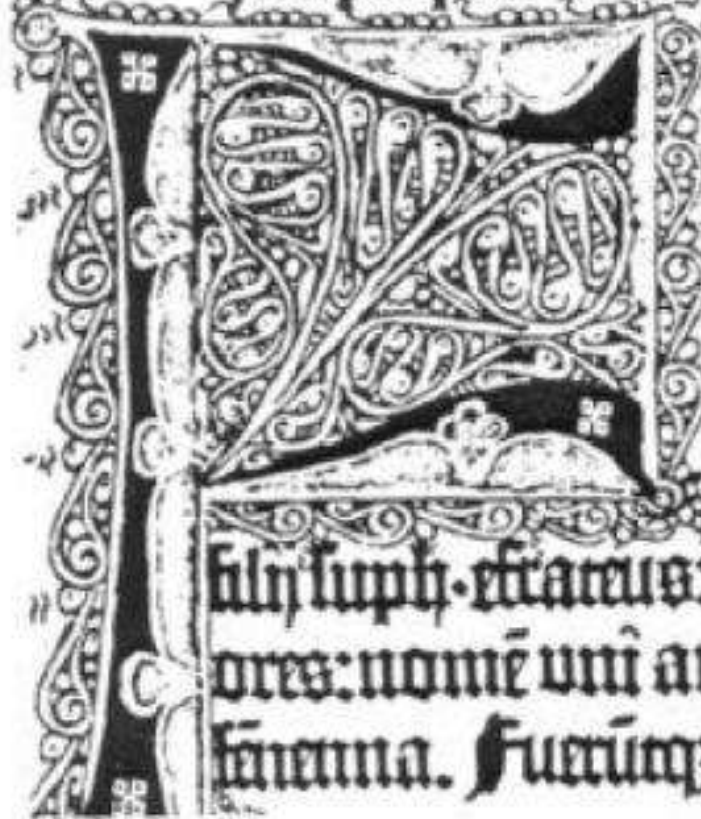 F
filij suph · efrateus:
ores: nomē uni an
fēnenna. Fuerūtq